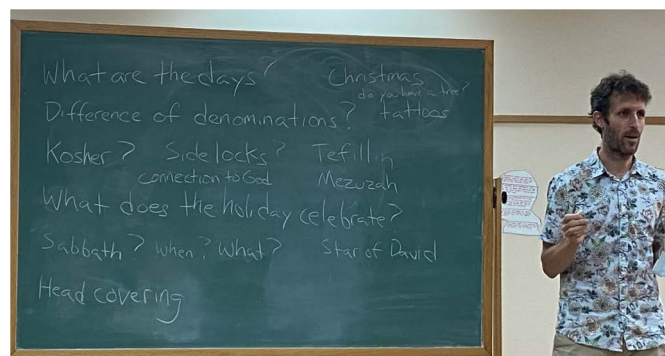 What are the days? Christmas
do you have a tree?
Difference of denominations? tattoos
Kosher? Sidelocks? Tefillin
connection to God Mezuzah
What does the holiday celebrate?
Sabbath? when? What? Star of David
Head covering